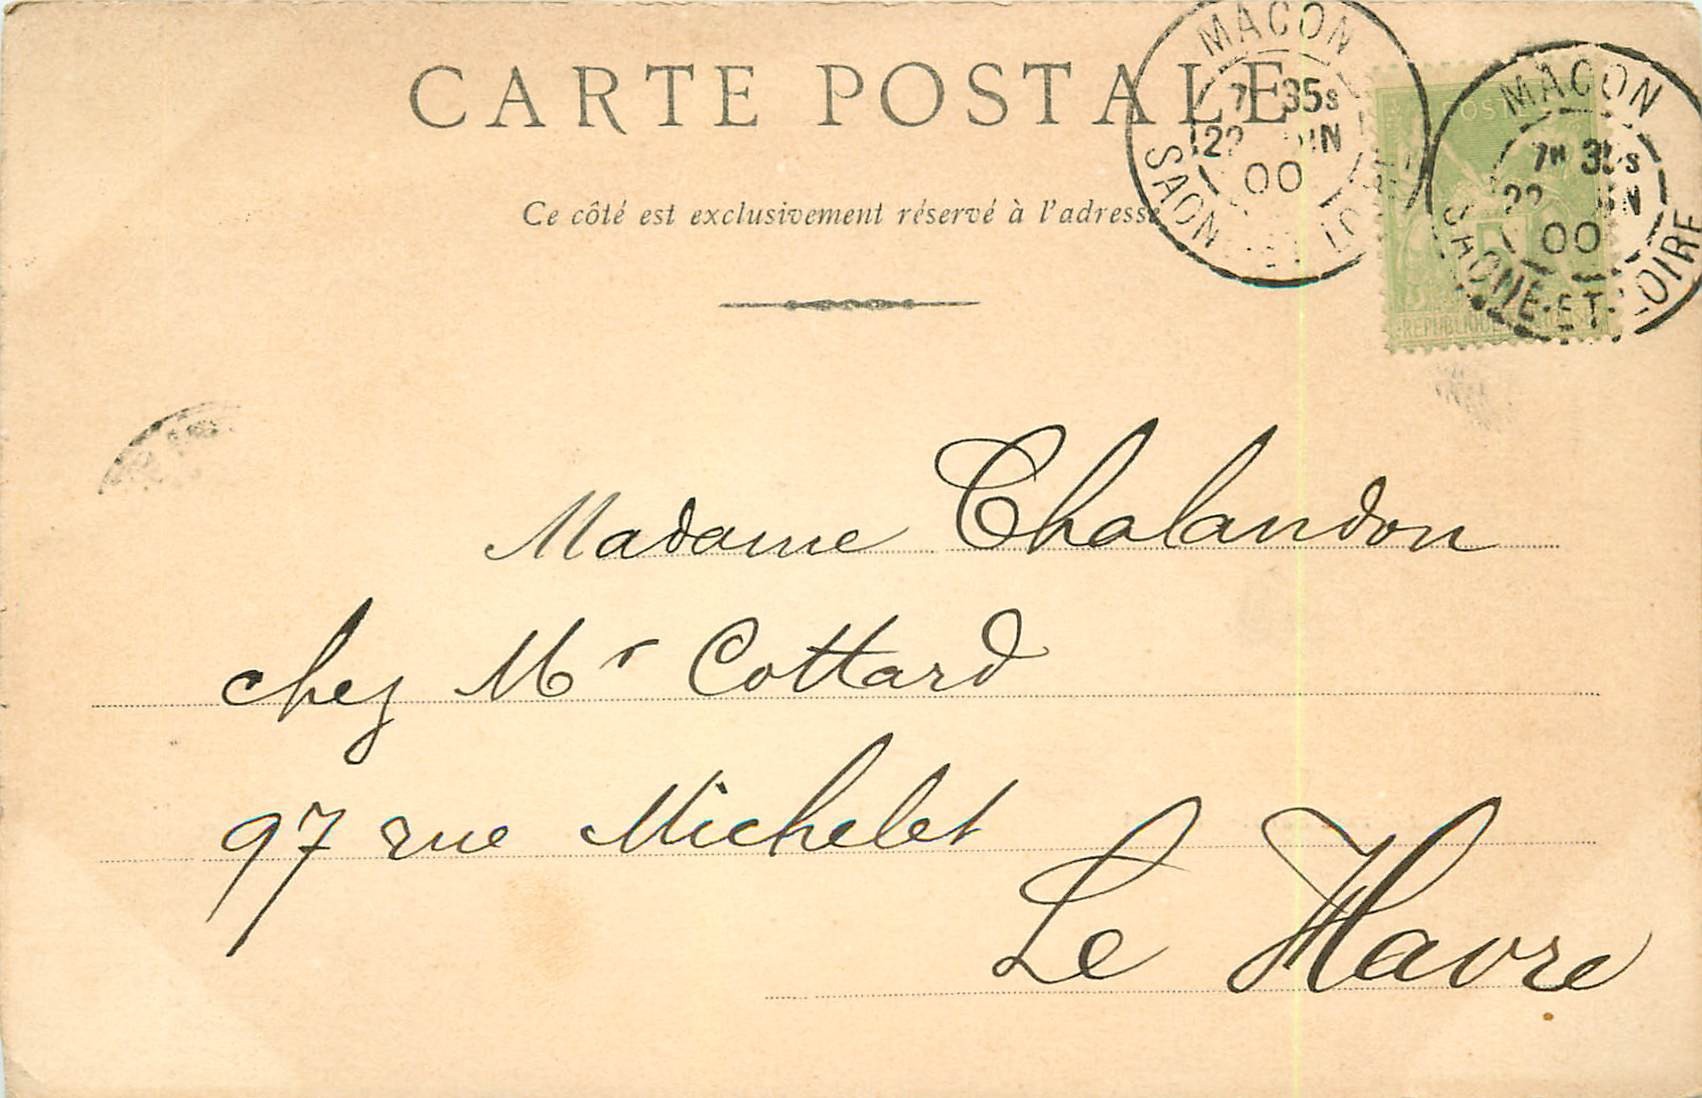 CARTE POSTALE
Ce côté est exclusivement réservé à l'adresse
MACON
7 35s
22 IN
00
SAONE-ET-LOIRE
MACON
7H 35s
22 IN
00
SAONE-ET-LOIRE
POST
REPUBLIQUE
Madame Chalandon
chez Mr Cottard
97 rue Michelet
Le Havre